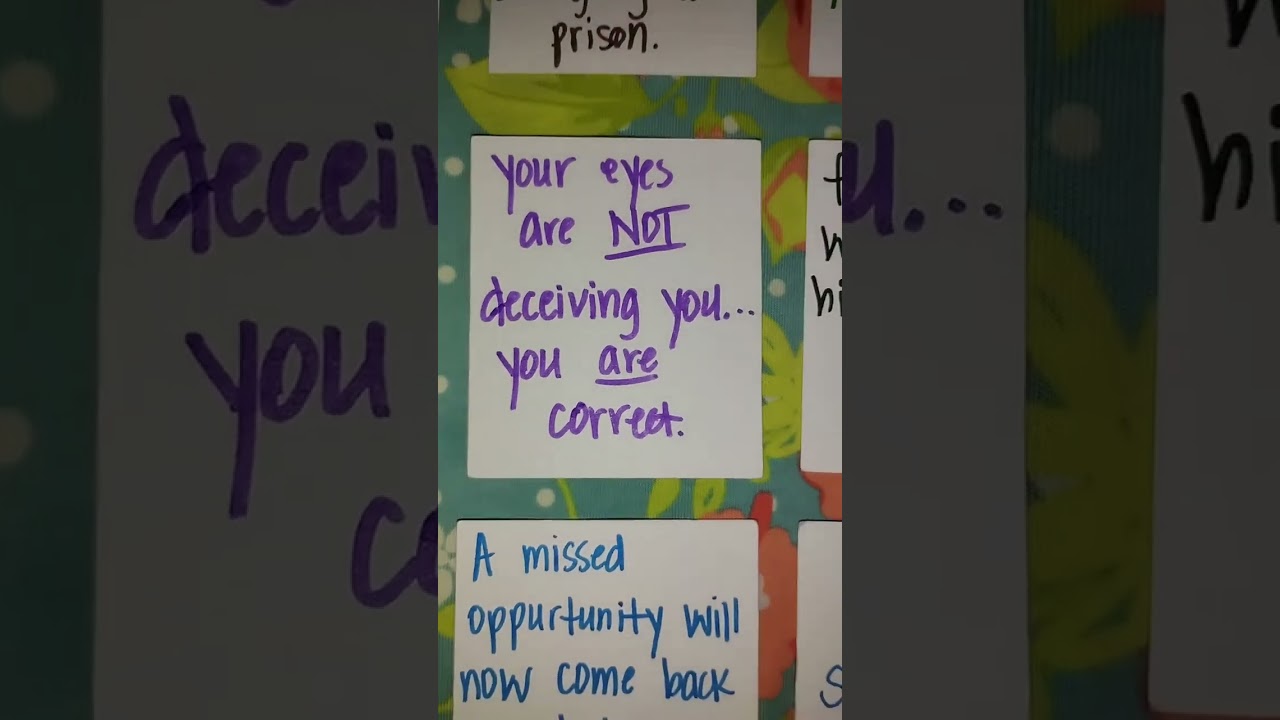 prison.
your eyes
are NOT
deceiving you...
you are
correct.
A missed
oppurtunity will
now come back
hi